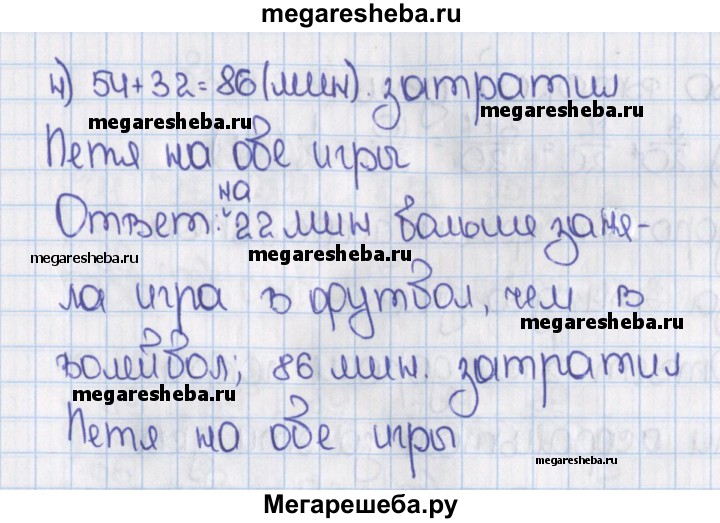 megaresheba.ru
4) 54+32=86(мин). затратил
megaresheba.ru
megaresheba.ru
Петя на обе игры
на
Ответ: 22 мин больше заня-
megaresheba.ru
megaresheba.ru
ла игра в футбол, чем в
megaresheba.ru
волейбол; 86 мин. затратил
megaresheba.ru
Петя на обе игры
megaresheba.ru
Мегарешеба.ру